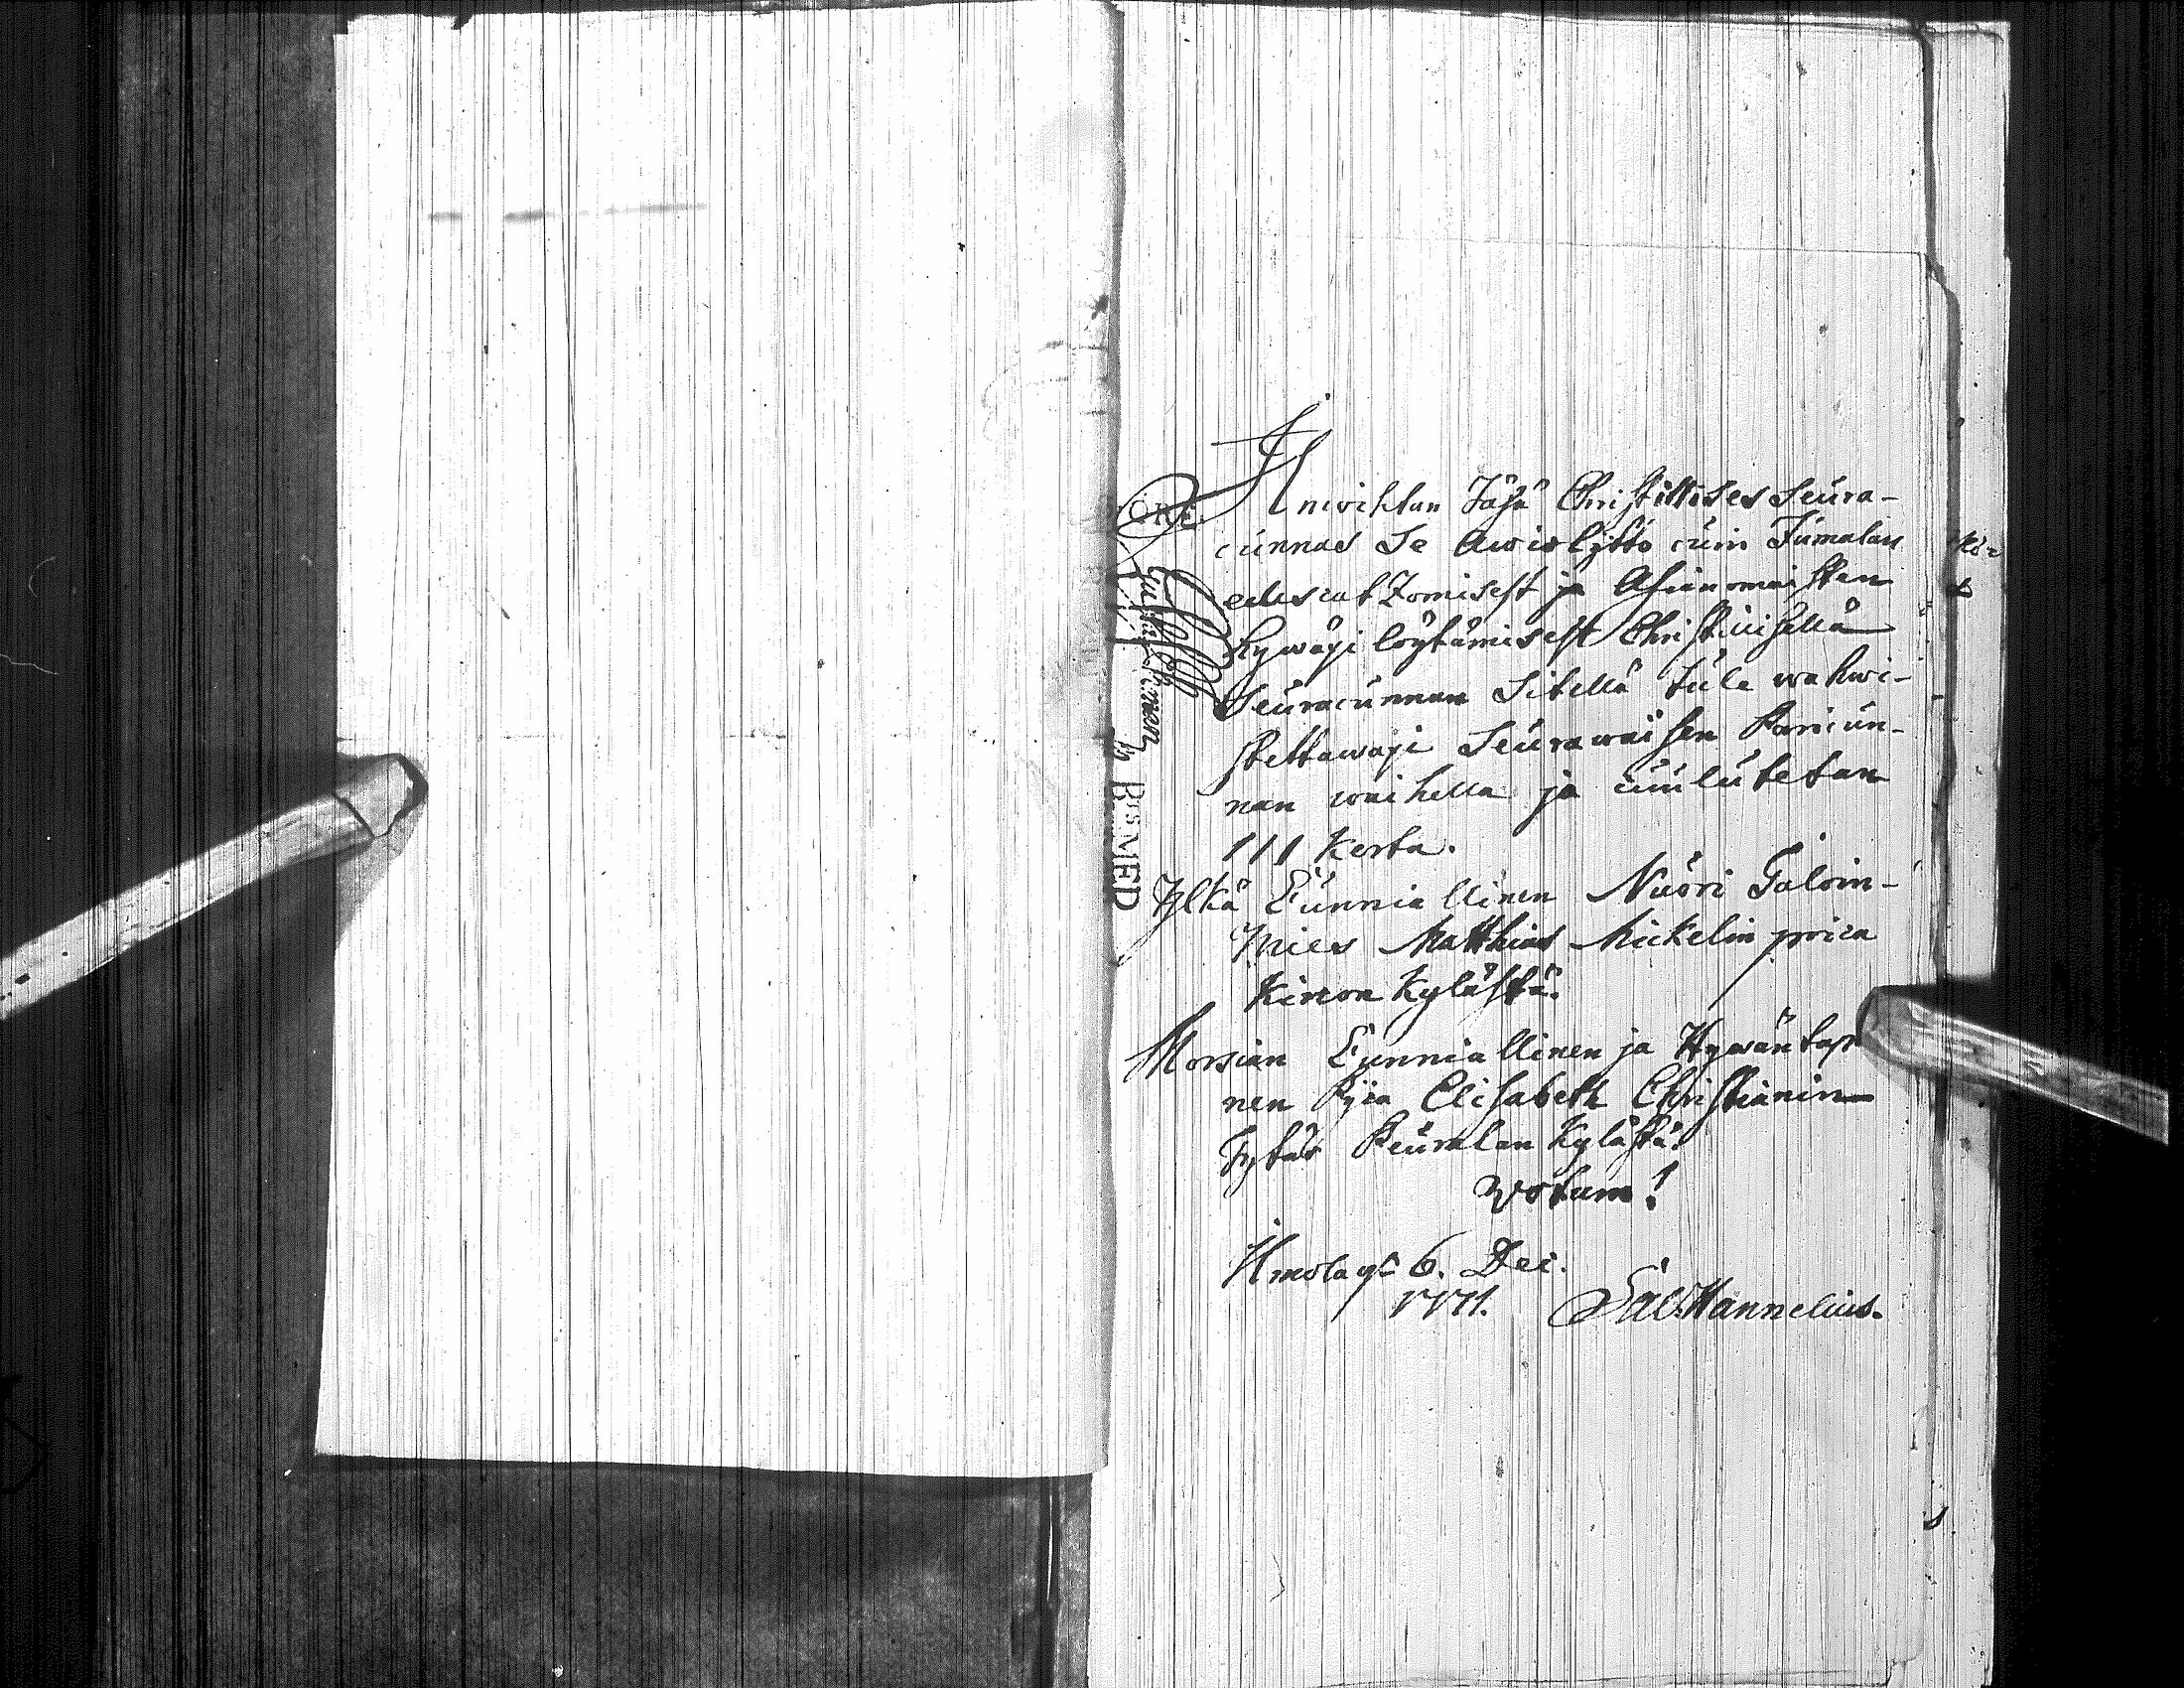 Jlmoihtan Täsä Christillises Seura-
cunnas Se Awioliitto cuin Jumalan
edescat zomisest ja Asianomaisten
hywäxi löytämisest Christillisellä
Seuracunnan Sitellä tule wahwi-
stettawaxi Seurawaisen Pariscun-
nan waihella ja cuulutetan
111 Kerta.
Ylkä Cunniallinen Nuori Taloin-
Mies Matthias Mickelin poica
Kiwon Kylästä.
Morsian Cunniallinen ja Hywäntap
nen Pijca Elisabeth Christianin
Tytär Peuralan Kylästä.
Votum!
Ilmola 6. Dec.
1771. Sal. Hannelius.
B:is MED